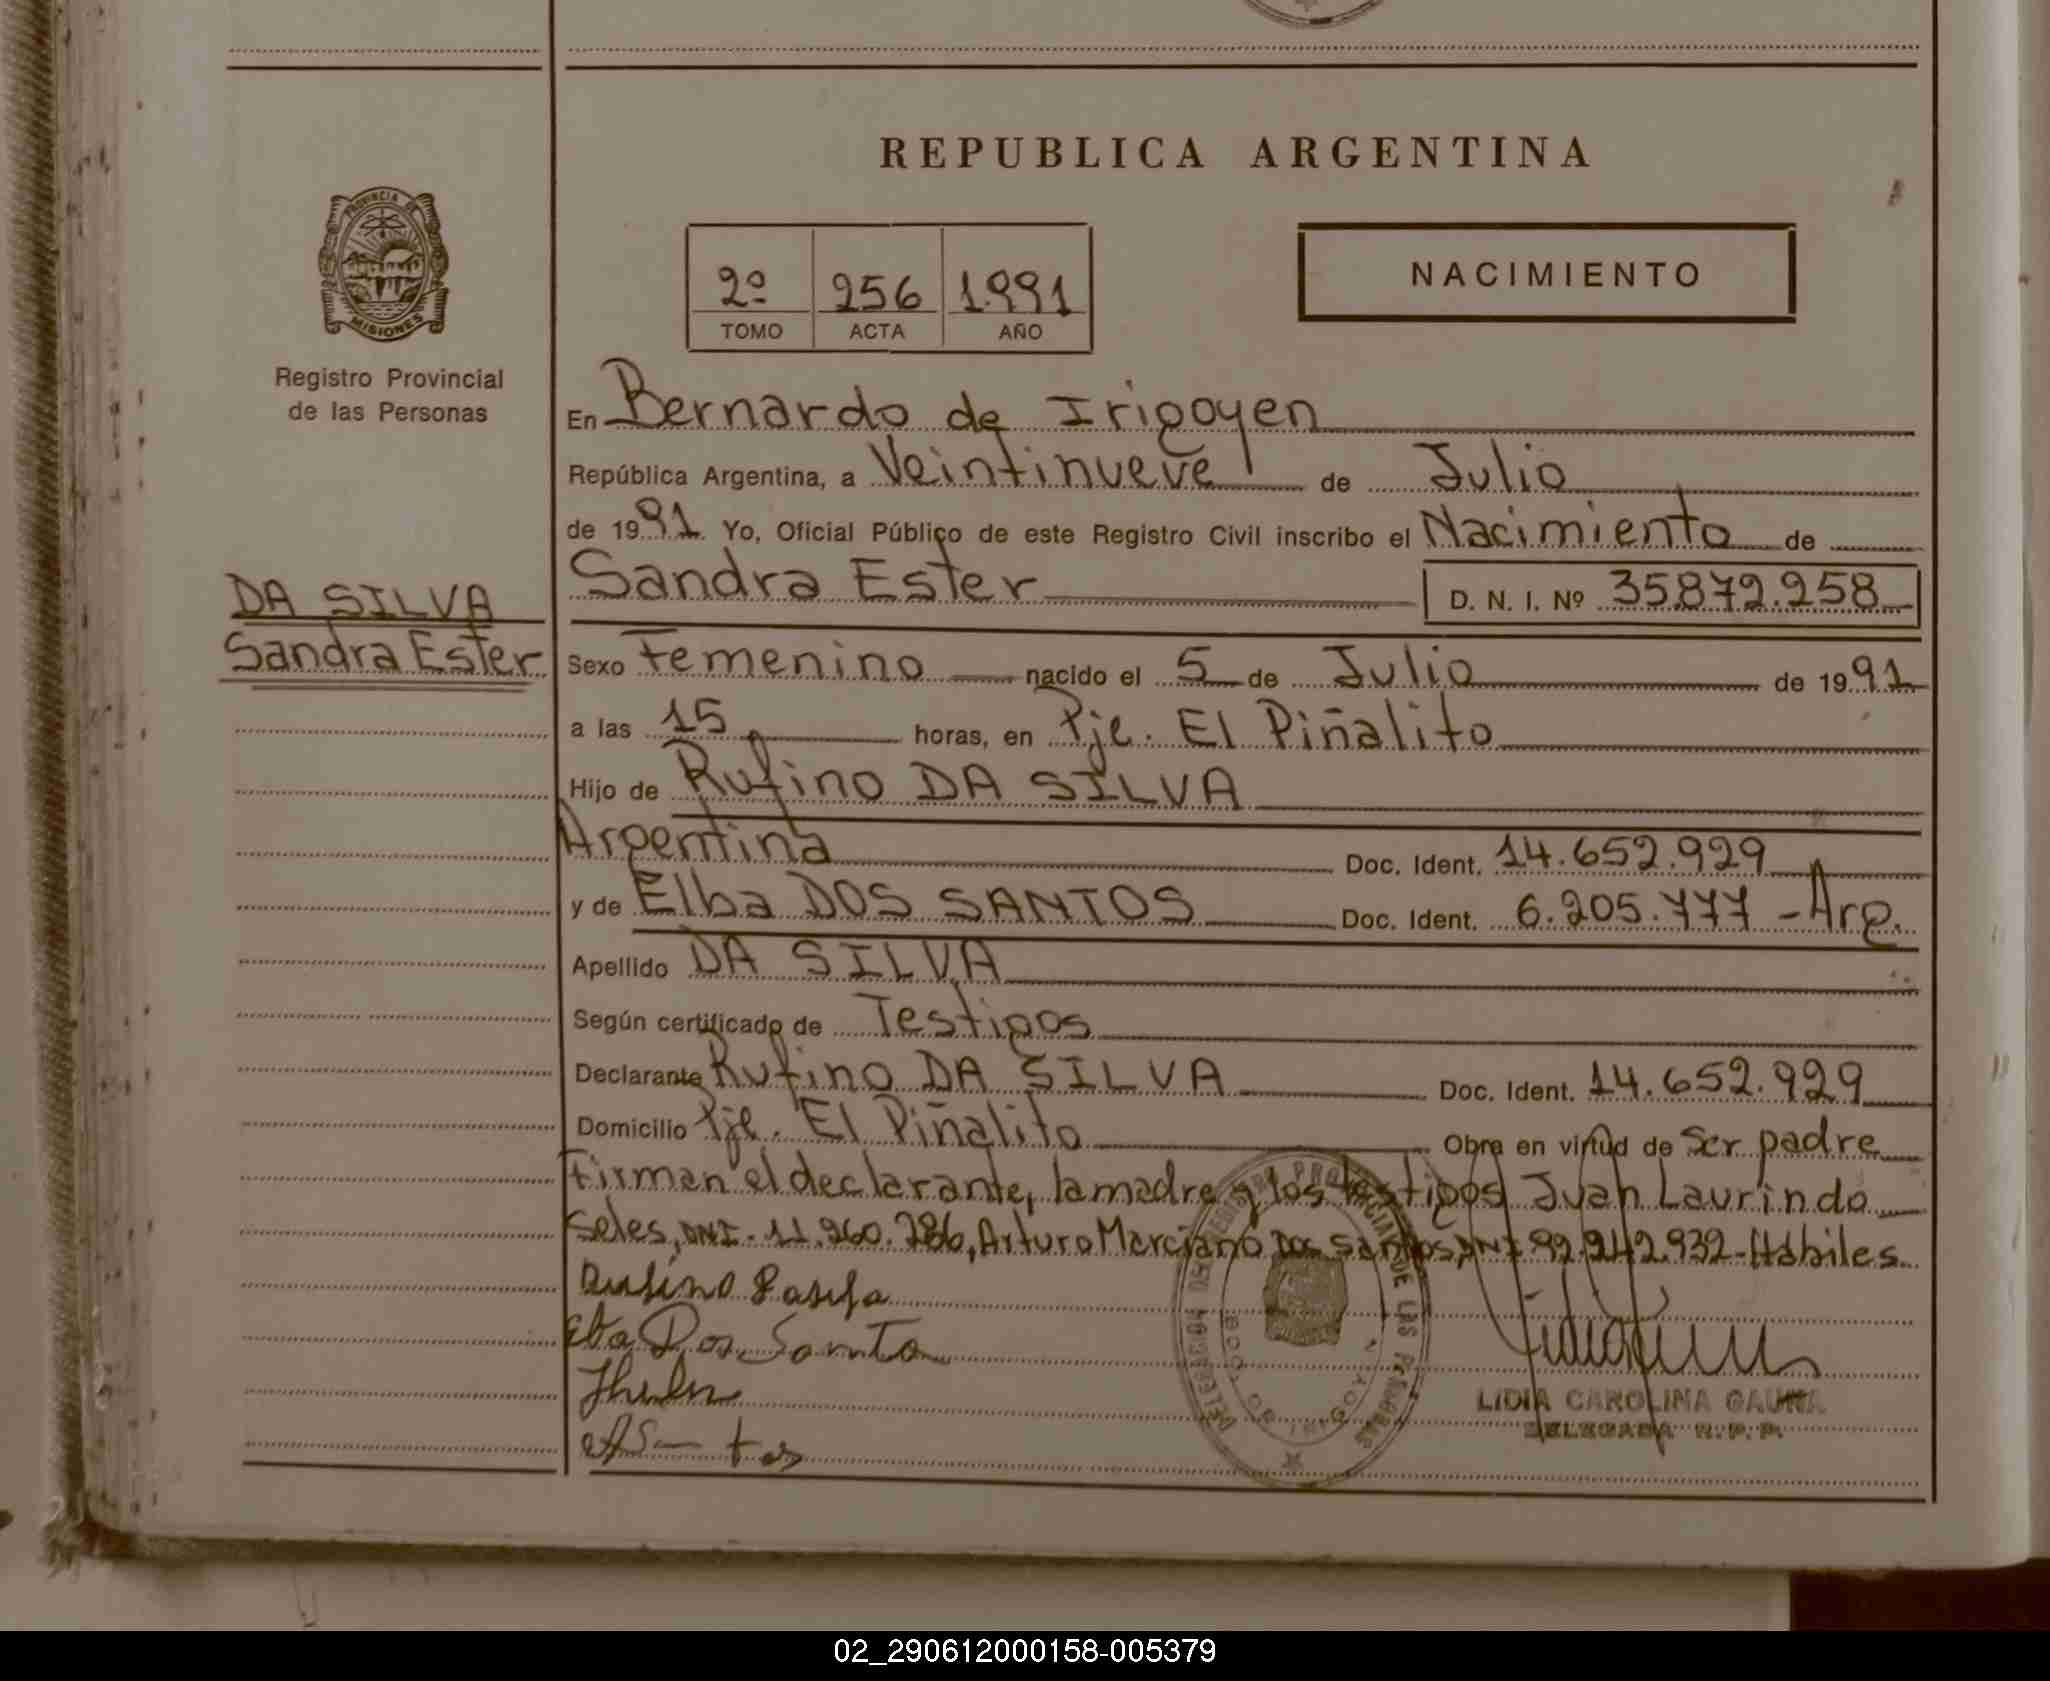 REPUBLICA ARGENTINA
PROVINCIA DE
MISIONES
Registro Provincial
de las Personas
2º 256 1.991
TOMO ACTA AÑO
NACIMIENTO
En Bernardo de Irigoyen
República Argentina, a Veintinueve de Julio
de 1991 Yo, Oficial Público de este Registro Civil inscribo el Nacimiento de
DA SILVA
Sandra Ester
Sandra Ester D. N. I. Nº 35.872.258
Sexo Femenino nacido el 5 de Julio de 1991
a las 15 horas, en Pje. El Piñalito
Hijo de Rufino DA SILVA
Argentina Doc. Ident. 14.652.929
y de Elba DOS SANTOS Doc. Ident. 6.205.777 - Arg.
Apellido DA SILVA
Según certificado de Testigos
Declarante Rufino DA SILVA Doc. Ident. 14.652.929
Domicilio Pje. El Piñalito Obra en virtud de Ser padre
Firman el declarante, la madre y los testigos Juan Laurindo
Seles, DNI. 11.260.286, Arturo Marciano DOS SANTOS, DNI 92.242.932 - Hábiles
Dos Santo
LIDIA CAROLINA GAUNA
DELEGADA R. P. P.
02_290612000158-005379